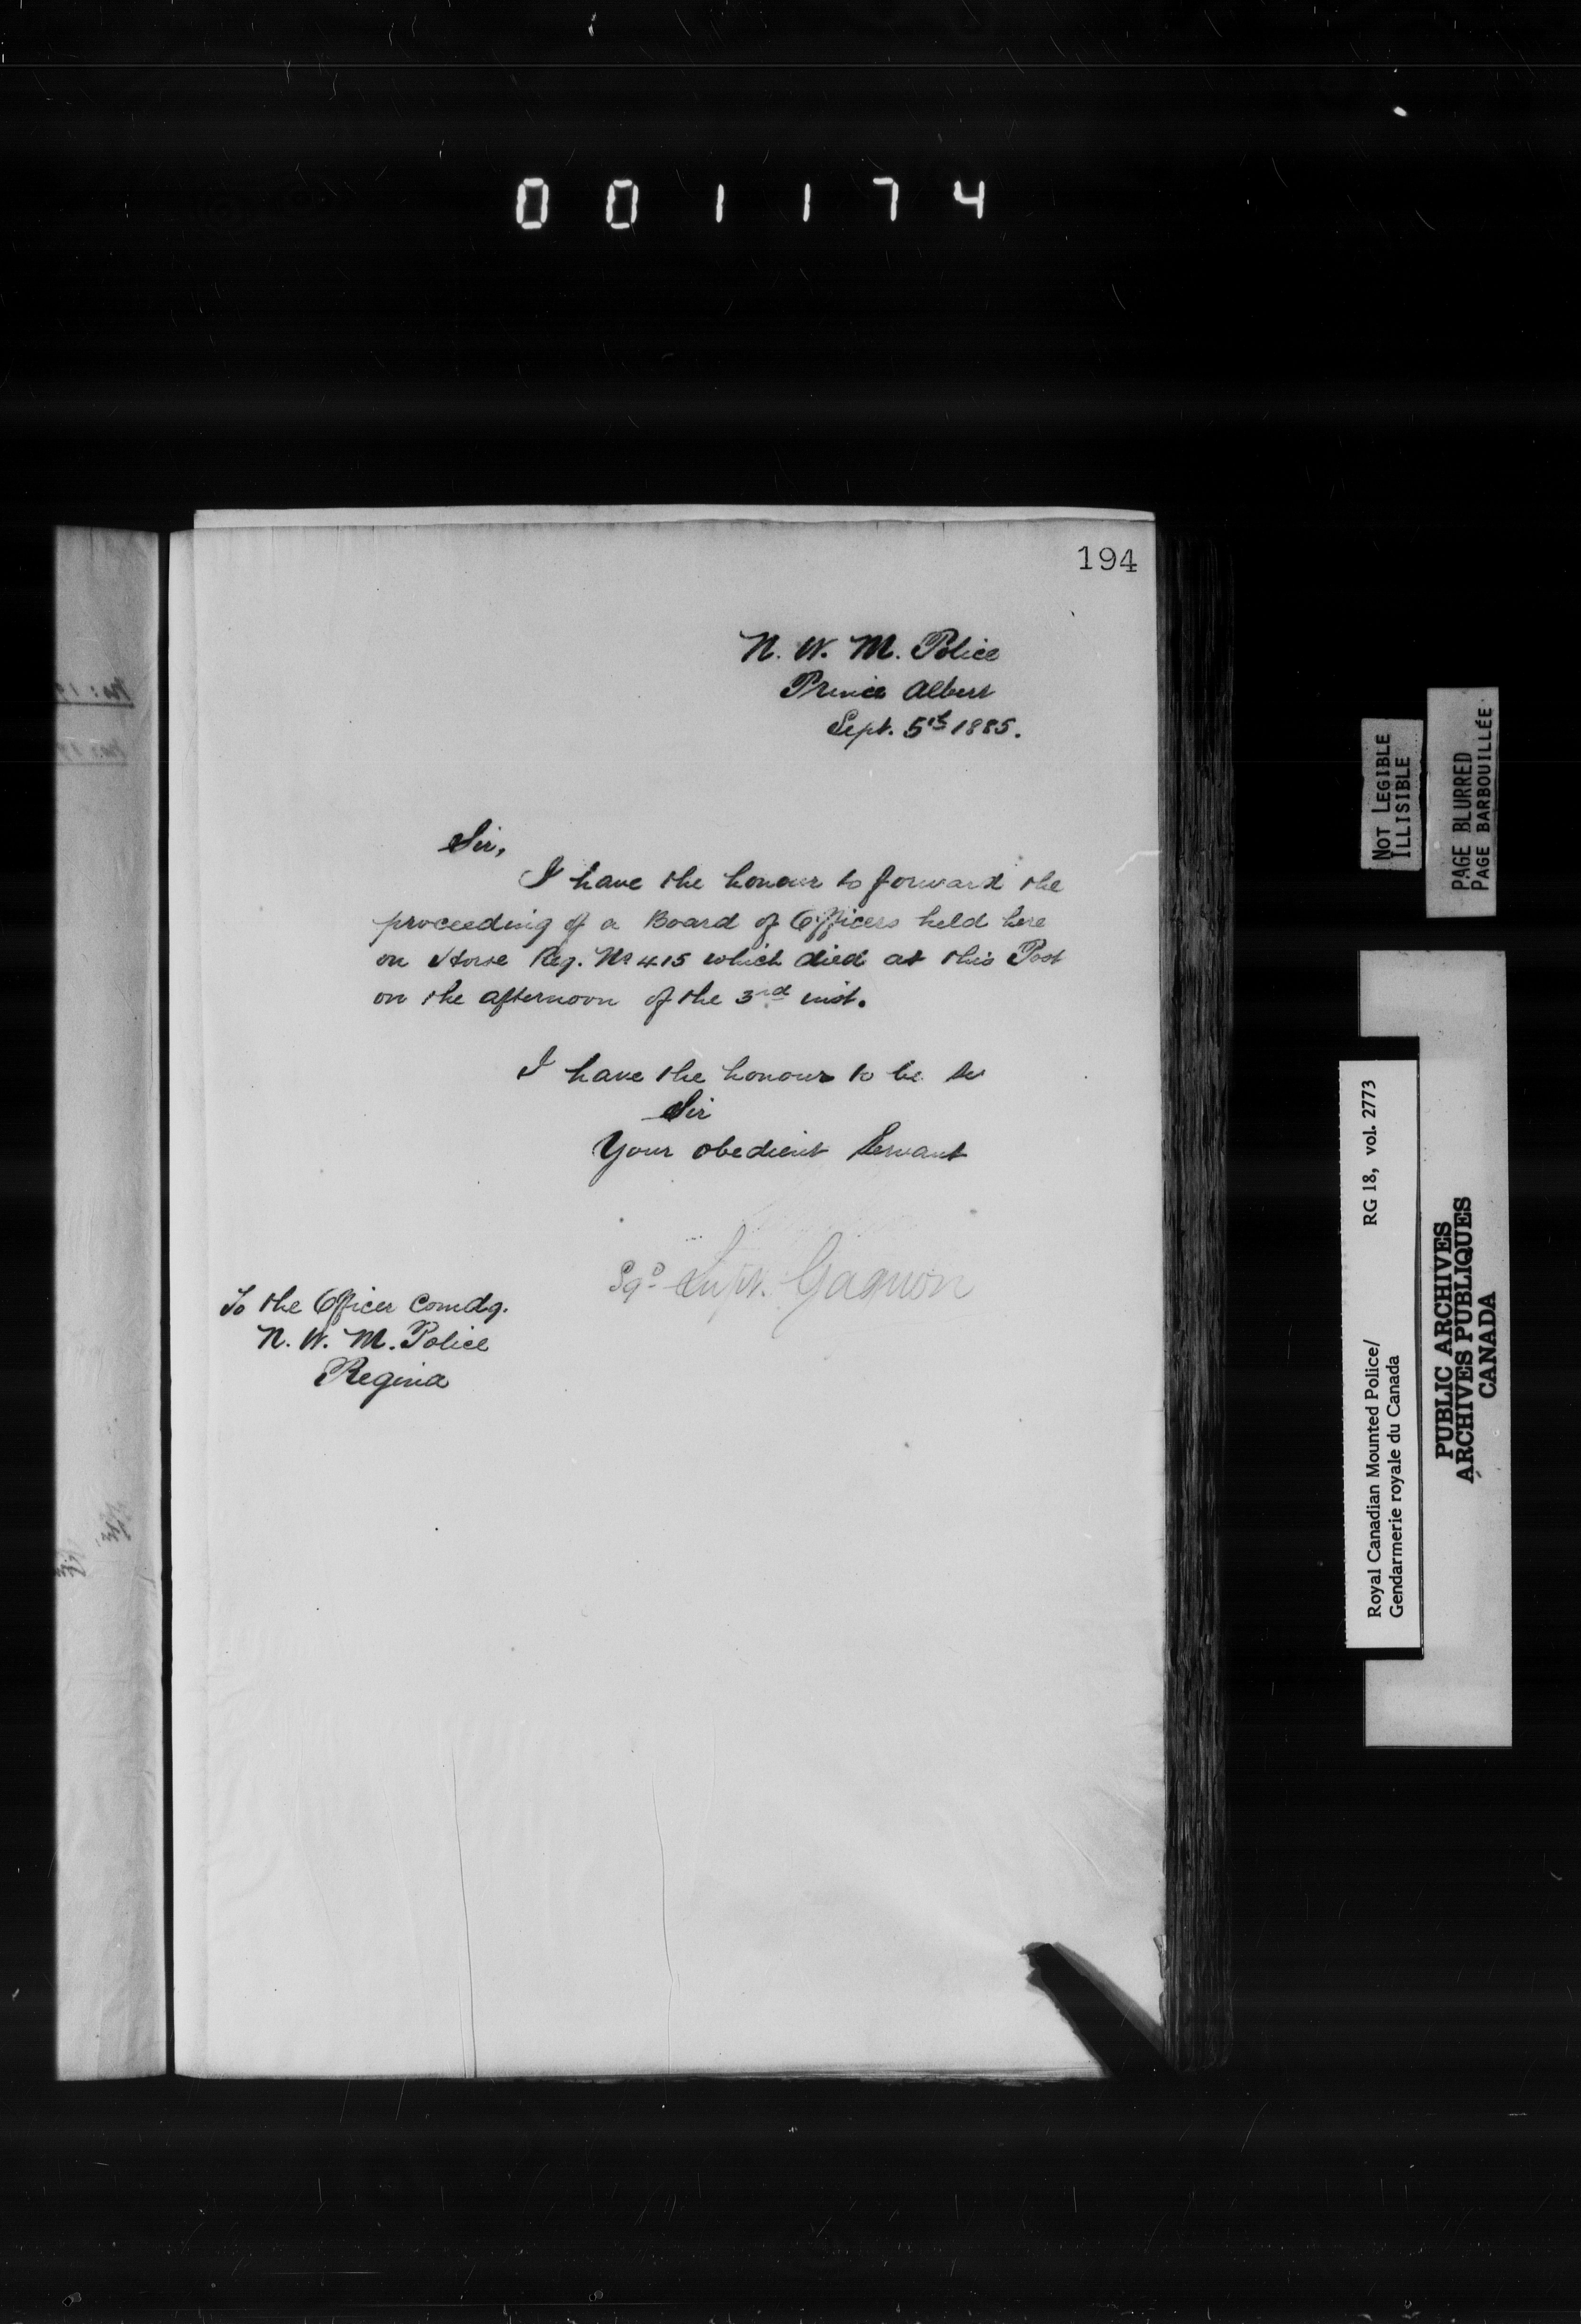 001174
194
N. W. M. Police
Prince Albert
Sept. 5th 1885.
Sir,
I have the honour to forward the
proceeding of a Board of Officers held here
on Horse Reg. No 415 which died at this Post
on the afternoon of the 3rd inst.
I have the honour to be
Sir
Your obedient Servant
Sgd Supt. Gagnon
To the Officer Comdg.
N. W. M. Police
Regina
NOT LEGIBLE
ILLISIBLE
PAGE BLURRED
PAGE BARBOUILLÉE
Royal Canadian Mounted Police/ RG 18, vol. 2773
Gendarmerie royale du Canada
PUBLIC ARCHIVES
ARCHIVES PUBLIQUES
CANADA